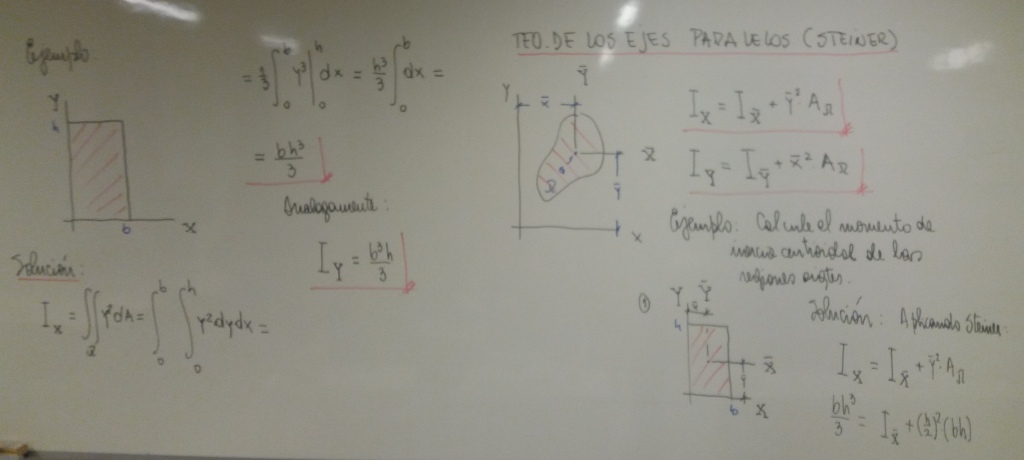 Ejemplo:
Y
h
b
X
Solución:
I_x = ∬_Ω y² dA = ∫₀ᵇ ∫₀ʰ y² dy dx =
= 1/3 ∫₀ᵇ y³ |₀ʰ dx = h³/3 ∫₀ᵇ dx =
= bh³/3
Analogamente:
I_Y = b³h/3
TEO. DE LOS EJES PARALELOS (STEINER)
Y
x̄
Ȳ
X̄
ȳ
Ω
X
I_X = I_X̄ + ȳ² A_Ω
I_Y = I_Ȳ + x̄² A_Ω
Ejemplo: Calcule el momento de
inercia centroidal de las
regiones
①
Y
Ȳ
h
X̄
b
X
Solución: Aplicando Steiner:
I_X = I_X̄ + ȳ² A_Ω
bh³/3 = I_X̄ + (h/2)² (bh)